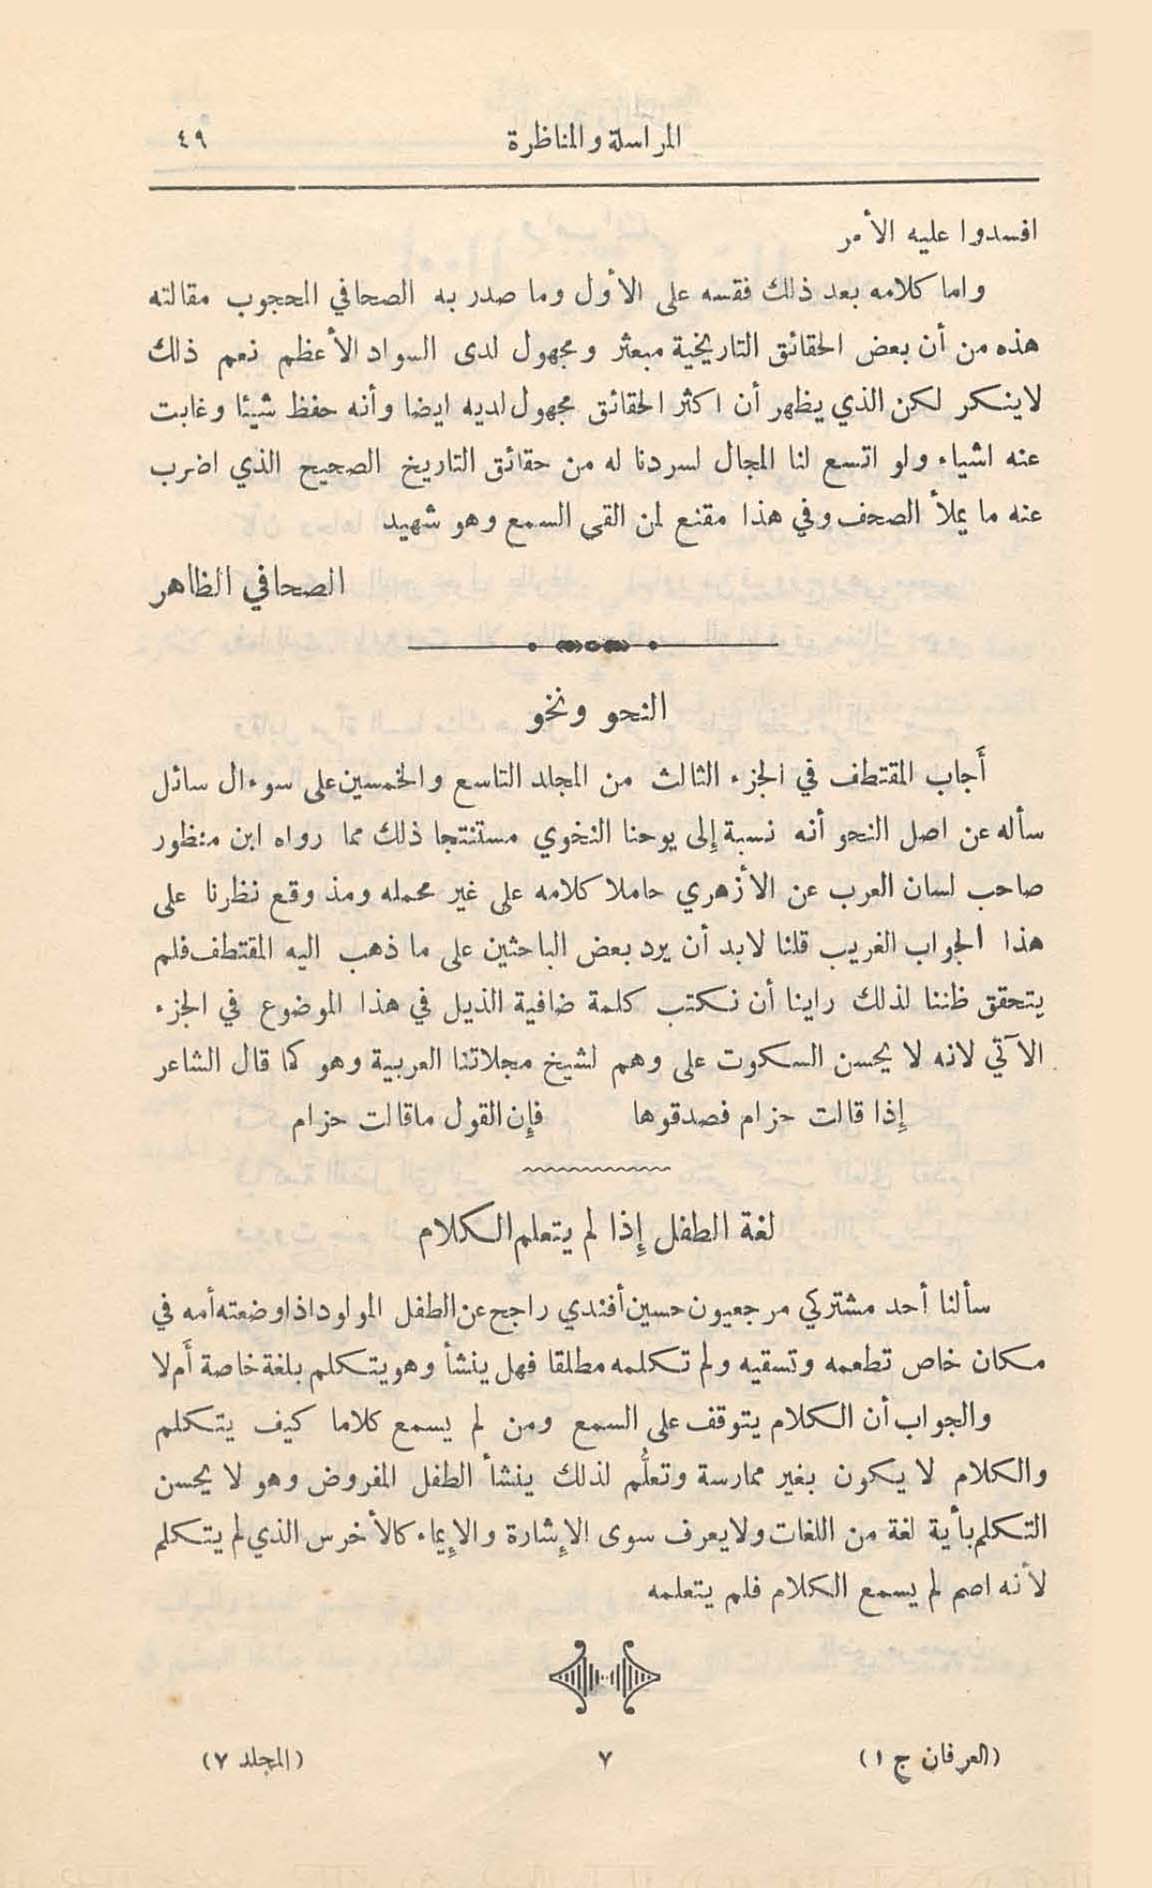 المراسلة والمناظرة ٤٩
افسدوا عليه الأمر
واما كلامه بعد ذلك فقسه على الأول وما صدر به الصحافي المحجوب مقالته
هذه من أن بعض الحقائق التاريخية مبعثر ومجهول لدى السواد الأعظم نعم ذلك
لاينكر لكن الذي يظهر أن اكثر الحقائق مجهول لديه ايضا وأنه حفظ شيئا وغابت
عنه اشياء ولو اتسع لنا المجال لسردنا له من حقائق التاريخ الصحيح الذي اضرب
عنه ما يملأ الصحف وفي هذا مقنع لمن القى السمع وهو شهيد
الصحافي الظاهر
النحو ونخو
أجاب المقتطف في الجزء الثالث من المجلد التاسع والخمسين على سوءال سائل
سأله عن اصل النحو أنه نسبة إلى يوحنا النخوي مستنتجا ذلك مما رواه ابن منظور
صاحب لسان العرب عن الأزهري حاملا كلامه على غير محمله ومذ وقع نظرنا على
هذا الجواب الغريب قلنا لابد أن يرد بعض الباحثين على ما ذهب اليه المقتطف فلم
يتحقق ظننا لذلك راينا أن نكتب كلمة ضافية الذيل في هذا الموضوع في الجزء
الآتي لانه لا يحسن السكوت على وهم لشيخ مجلاتنا العربية وهو كما قال الشاعر
إذا قالت حزام فصدقوها فإن القول ماقالت حزام
لغة الطفل إذا لم يتعلم الكلام
سألنا أحد مشتركي مرجعيون حسين أفندي راجح عن الطفل المولود اذا وضعته أمه في
مكان خاص تطعمه وتسقيه ولم تكلمه مطلقا فهل ينشأ وهو يتكلم بلغة خاصة أم لا
والجواب أن الكلام يتوقف على السمع ومن لم يسمع كلاما كيف يتكلم
والكلام لا يكون بغير ممارسة وتعلُّم لذلك ينشأ الطفل المفروض وهو لا يحسن
التكلم بأية لغة من اللغات ولايعرف سوى الإشارة والإيماء كالأخرس الذي لم يتكلم
لأنه اصم لم يسمع الكلام فلم يتعلمه
(العرفان ج ١) ٧ (المجلد ٧)